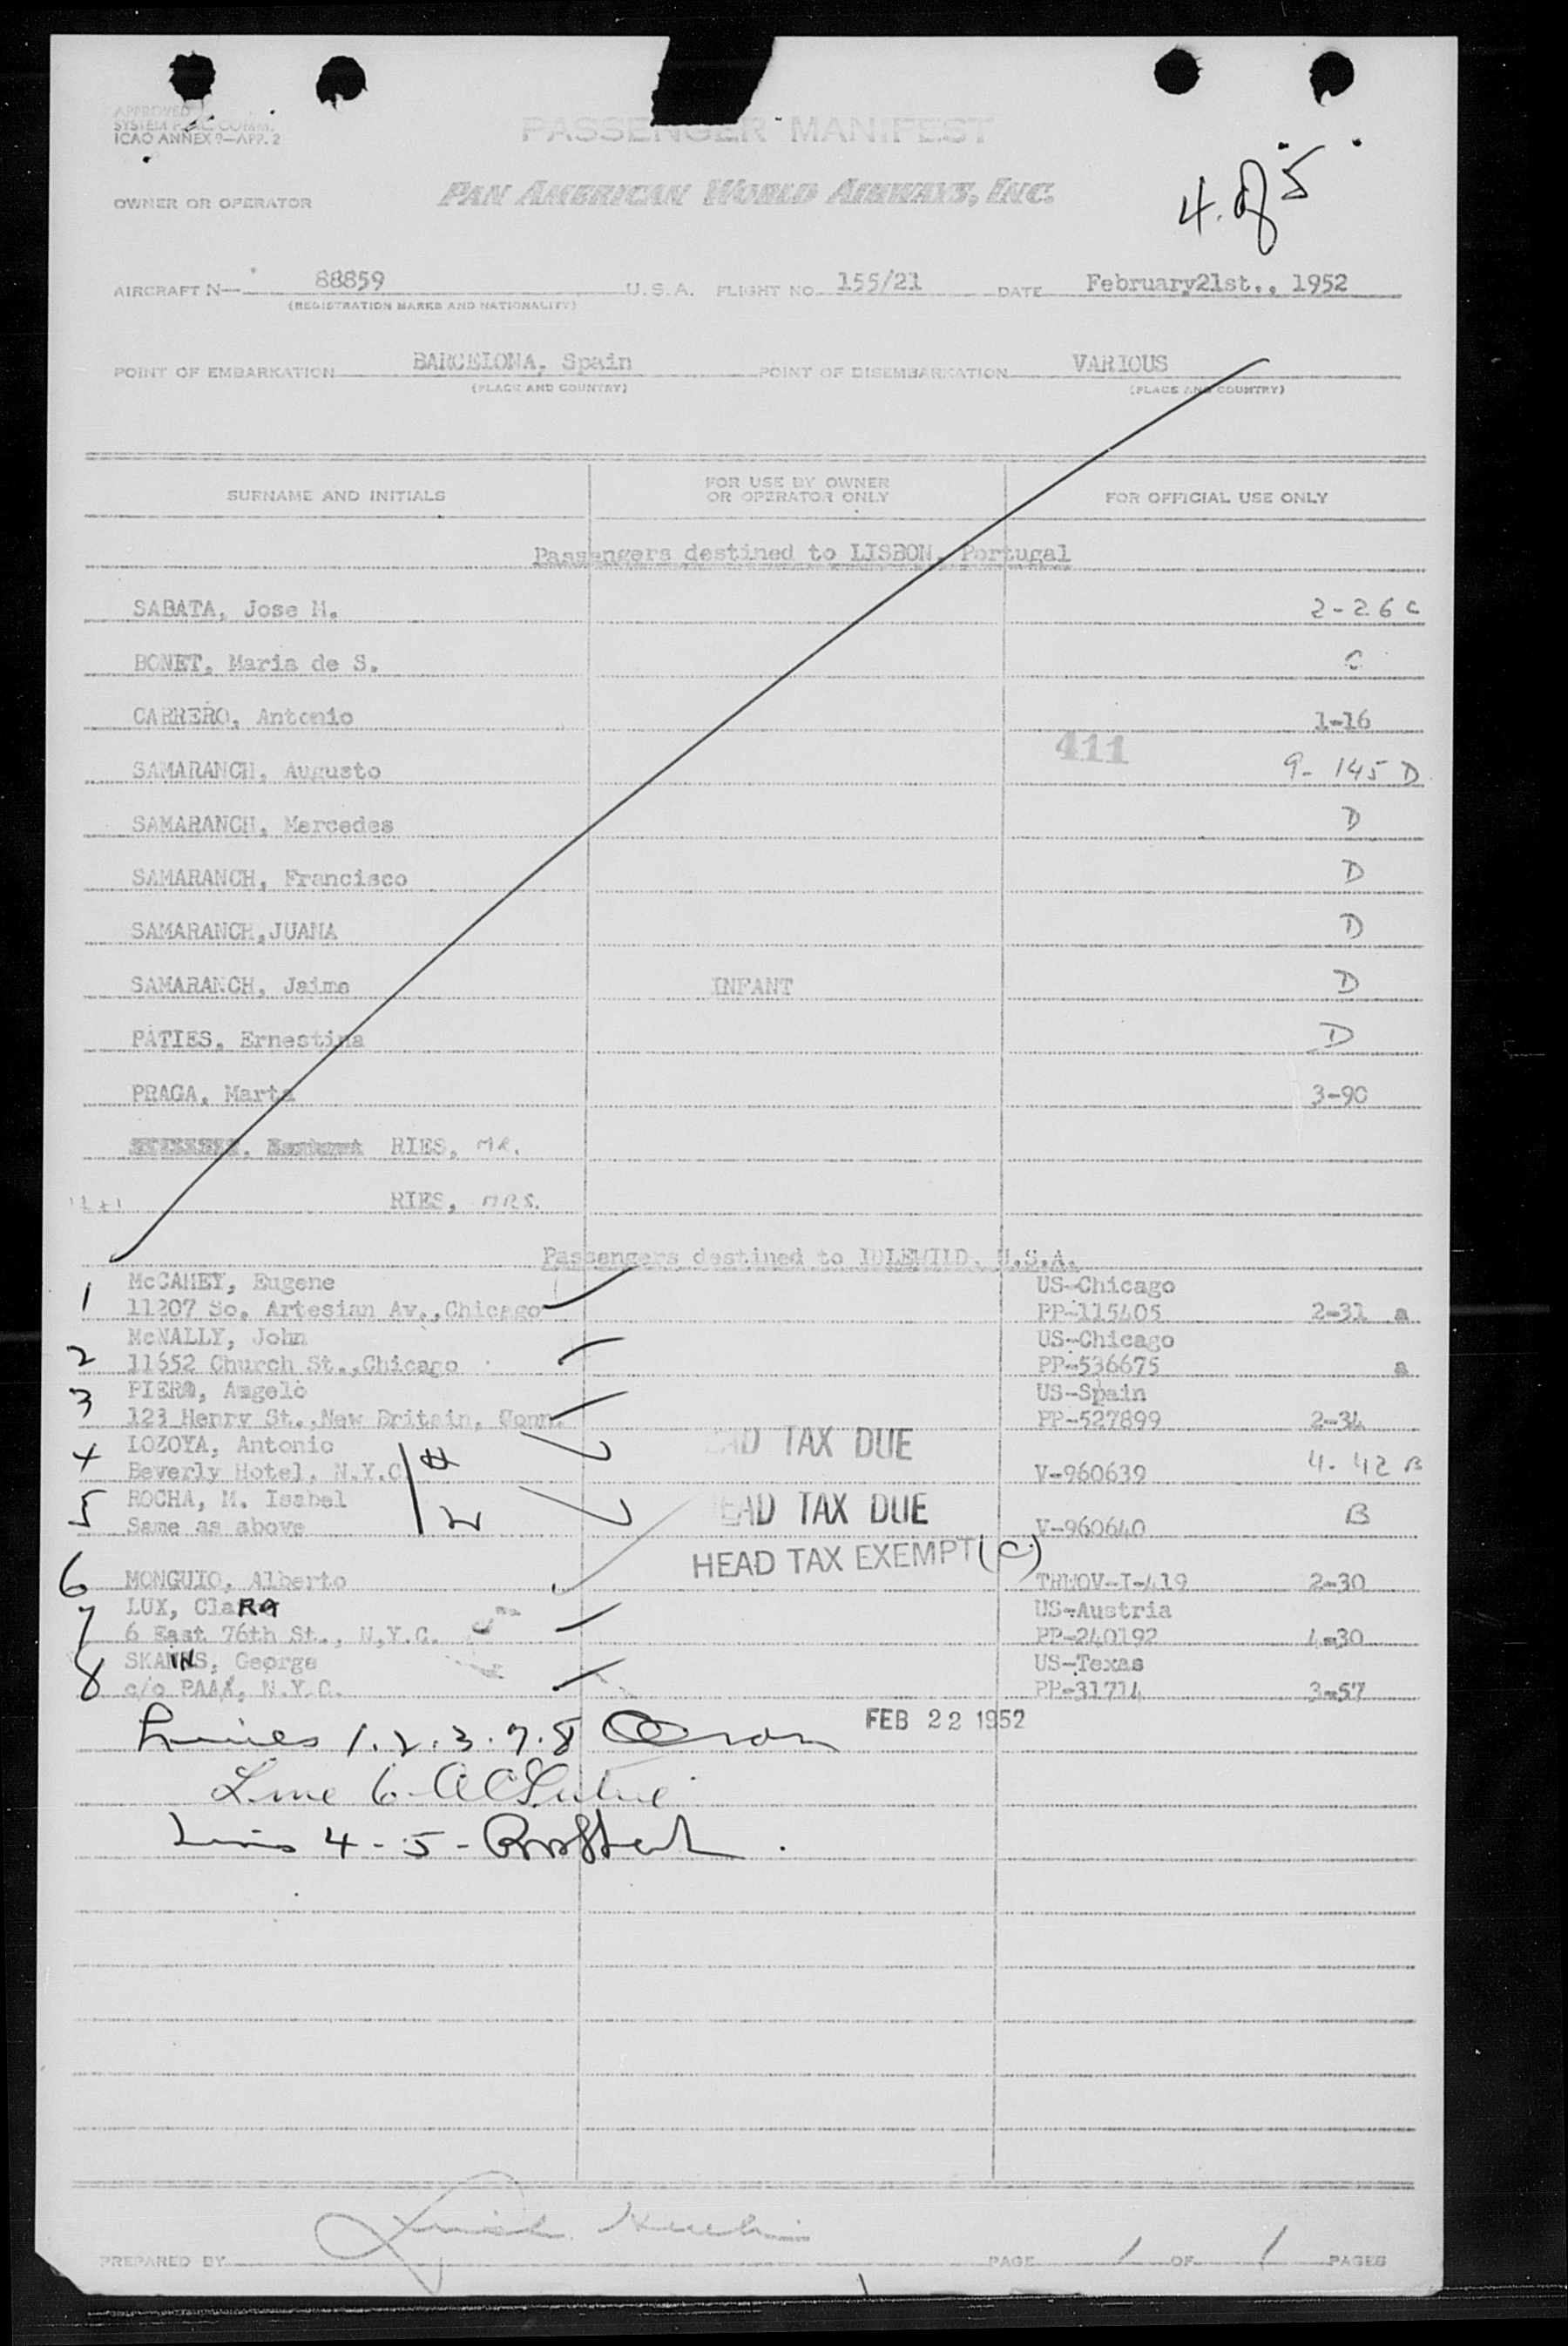 APPROVED
ICAO ANNEX 9—APP. 2
PASSENGER MANIFEST
OWNER OR OPERATOR PAN AMERICAN WORLD AIRWAYS, INC.
4. of 5
AIRCRAFT N— 88859 U.S.A. FLIGHT NO. 155/21 DATE February21st., 1952
(REGISTRATION MARKS AND NATIONALITY)
POINT OF EMBARKATION BARCELONA, Spain POINT OF DISEMBARKATION VARIOUS
(PLACE AND COUNTRY) (PLACE AND COUNTRY)
SURNAME AND INITIALS FOR USE BY OWNER OR OPERATOR ONLY FOR OFFICIAL USE ONLY
Passengers destined to LISBON, Portugal
SABATA, Jose M. 2-26 C
BONET, Maria de S. C
CARRERO, Antonio 1-16
411
SAMARANCH, Augusto 9- 145 D
SAMARANCH, Mercedes D
SAMARANCH, Francisco D
SAMARANCH,JUANA D
SAMARANCH, Jaime INFANT D
PATIES, Ernestina D
PRAGA, Marta 3-90
RIES, MR.
RIES, MRS.
Passengers destined to IDLEWILD, U.S.A.
McCAHEY, Eugene US-Chicago
1 11207 So. Artesian Av.,Chicago PP-115405 2-31 a
McNALLY, John US-Chicago
2 11652 Church St.,Chicago PP-536675 a
PIERO, Angelo US-Spain
3 123 Henry St.,New Britain, Conn. PP-527899 2-34
LOZOYA, Antonio HEAD TAX DUE
4 Beverly Hotel, N.Y.C. V-960639 4-42 B
ROCHA, M. Isabel HEAD TAX DUE
5 Same as above V-960640 B
HEAD TAX EXEMPT (C)
6 MONGUIO, Alberto 2-30
LUX, ClaRA US-Austria
7 6 East 76th St., N.Y.C. PP-240192 4-30
George US-Texas
8 c/o PAAX, N.Y.C. PP-31714 3-57
FEB 22 1952
Lines 1.2.3.7.8
Line 6-
Lines 4-5-
PREPARED BY PAGE 1 OF 1 PAGES